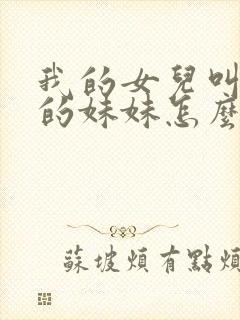 我的女兒叫
的妹妹怎麼
蘇坡煩有點煩